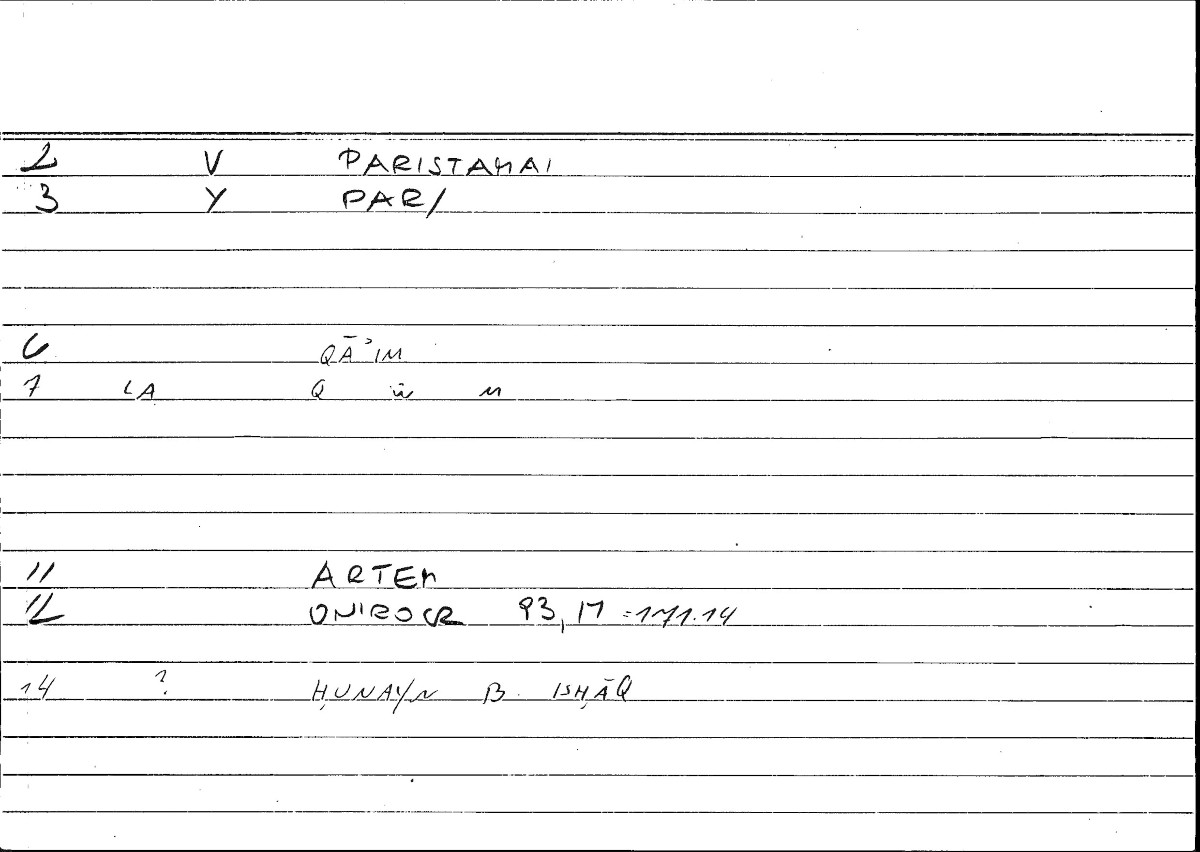 2 V PARISTAMAI
3 Y PAR/
6 QĀʾIM
7 LA Q ẅ M
11 ARTEM
12 ONIROCR 93,17 =171.14
14 ? ḤUNAYN B. ISḤĀQ